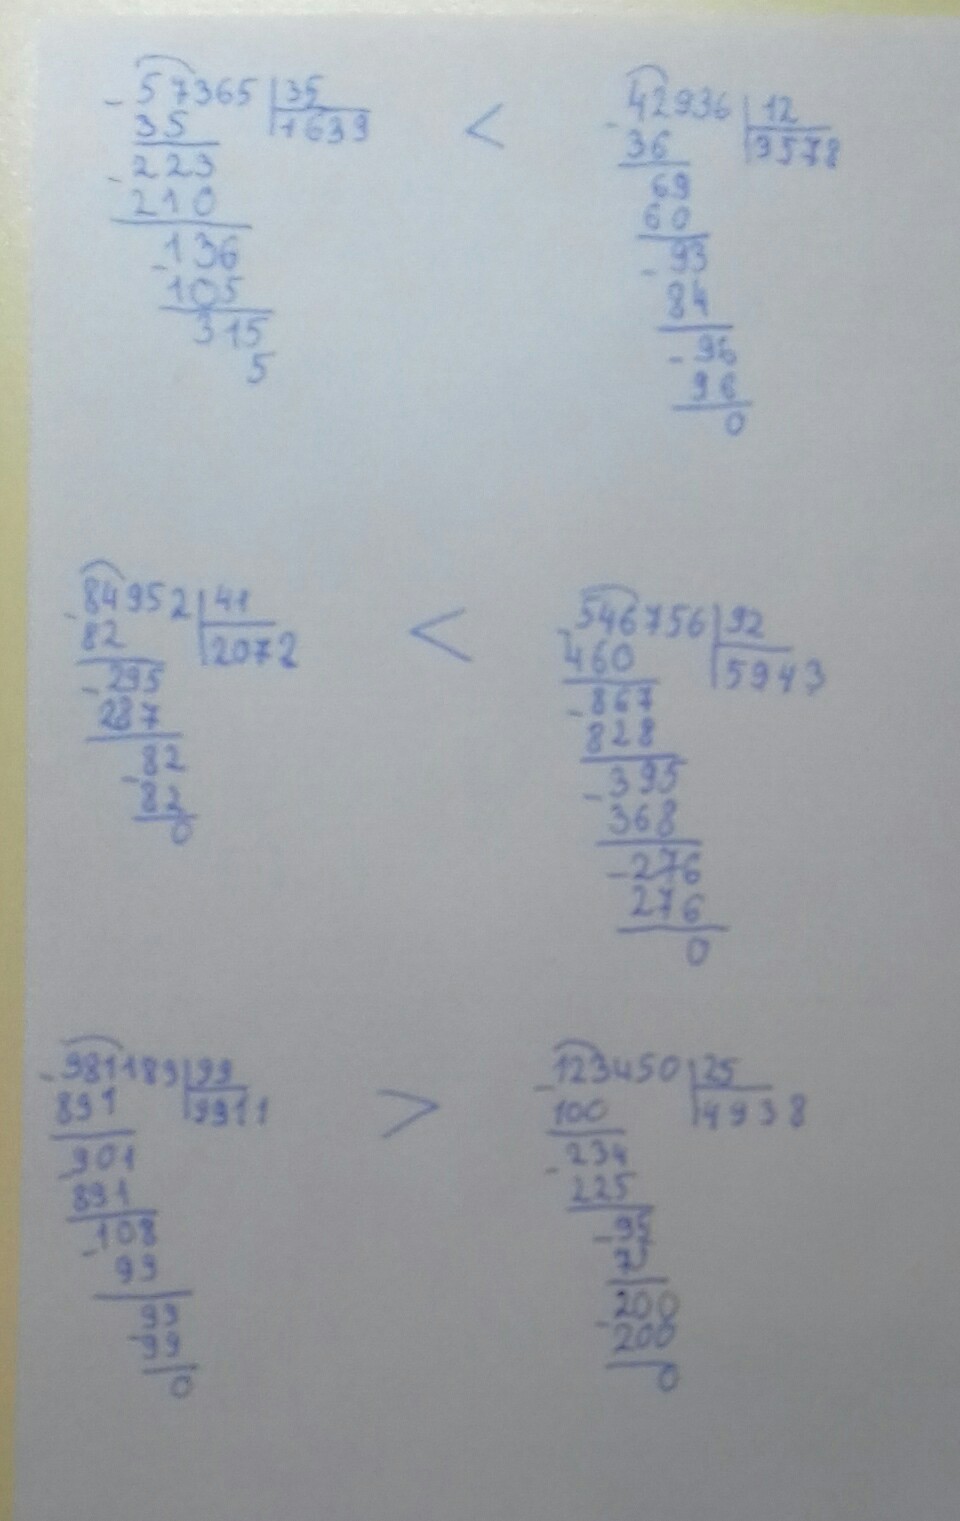 57365 | 35 < 42936 | 12
35 1639 36 3578
223 69
210 60
136 93
105 84
315 96
5 96
0
84952 | 41 < 546756 | 92
82 2072 460 5943
295 867
287 828
82 395
82 368
0 276
276
0
981189 | 99 > 123450 | 25
891 9911 100 4938
901 234
891 225
108 95
99 75
99 200
99 200
0 0